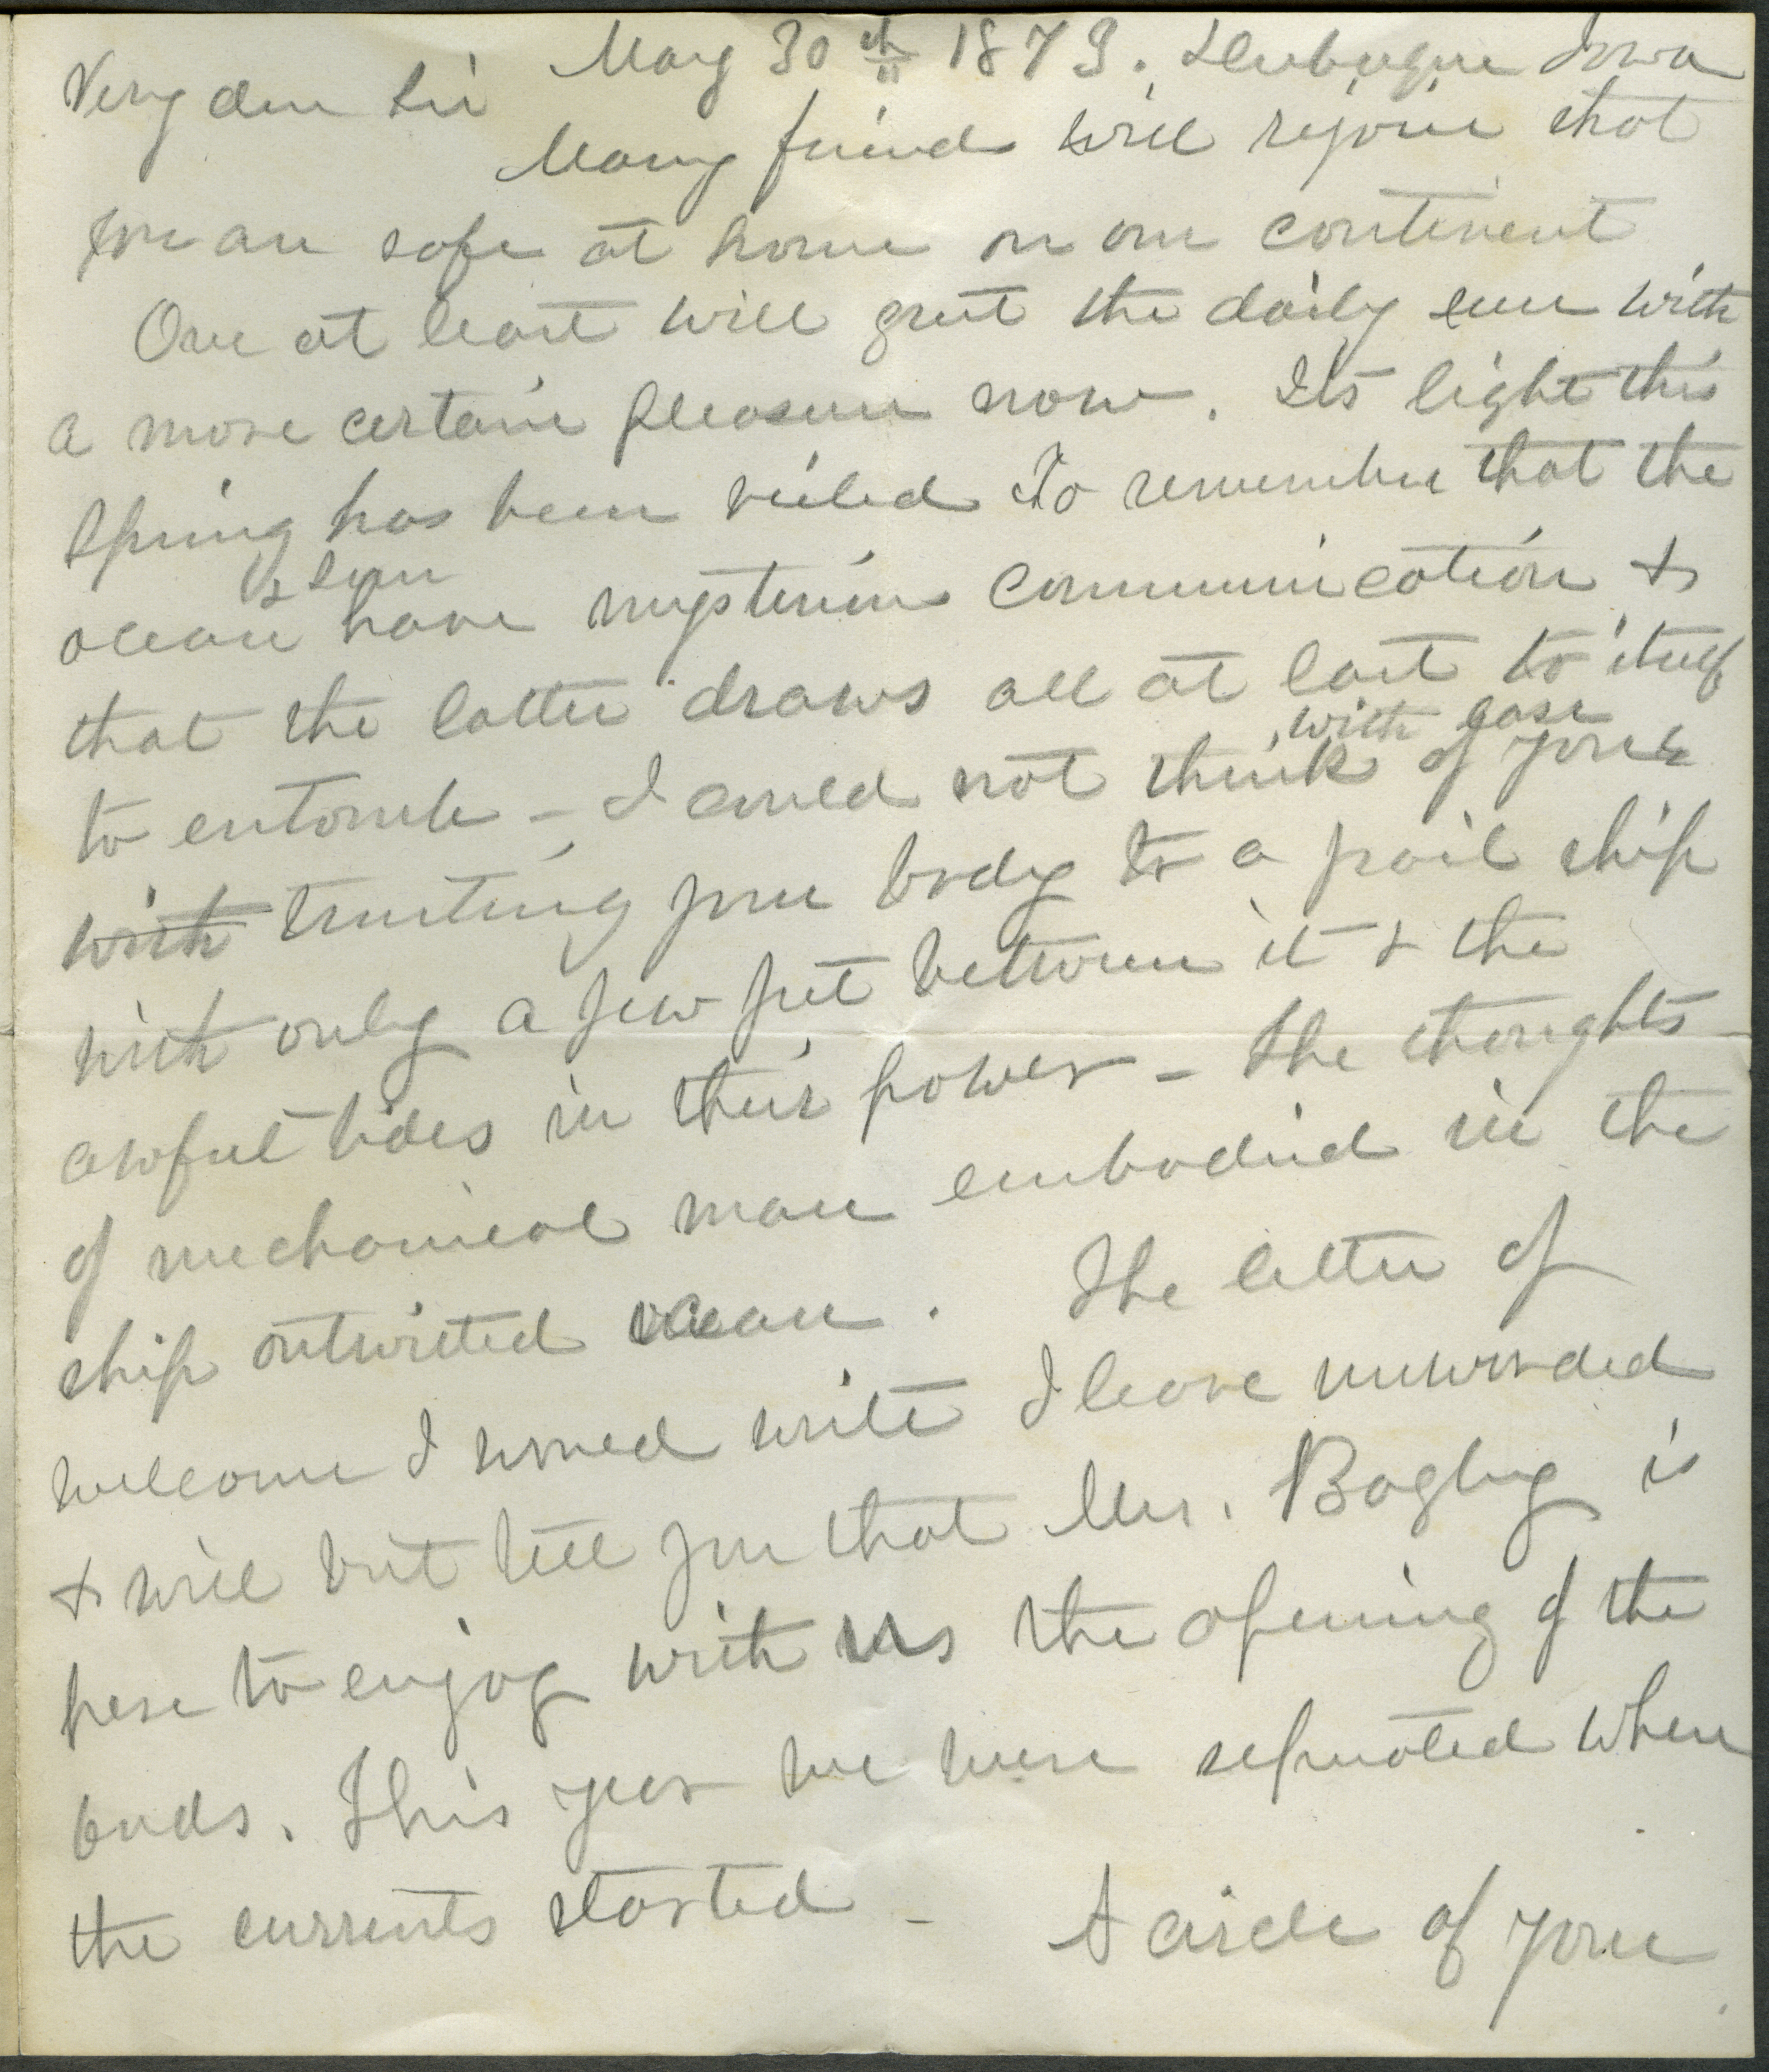 May 30th 1873. Dubuque Iowa
Very dear Sir
Many friends will rejoice that
you are safe at home on our continent
One at least will greet the daily sun with
a more certain pleasure now. Its light this
Spring has been veiled to remember that the
& sun
ocean have mysterious communication &
that the latter draws all at last to itself
with ease
to entomb - I could not think of you &
with trusting your body to a frail ship
with only a few feet between it & the
awful tides in their power - The thoughts
of mechanical man embodied in the
ship outwitted ocean. The letter of
welcome I would write I leave unworded
& will but tell you that Mrs. Bagley is
here to enjoy with us the opening of the
buds. This year we were separated when
the currents started - A circle of your